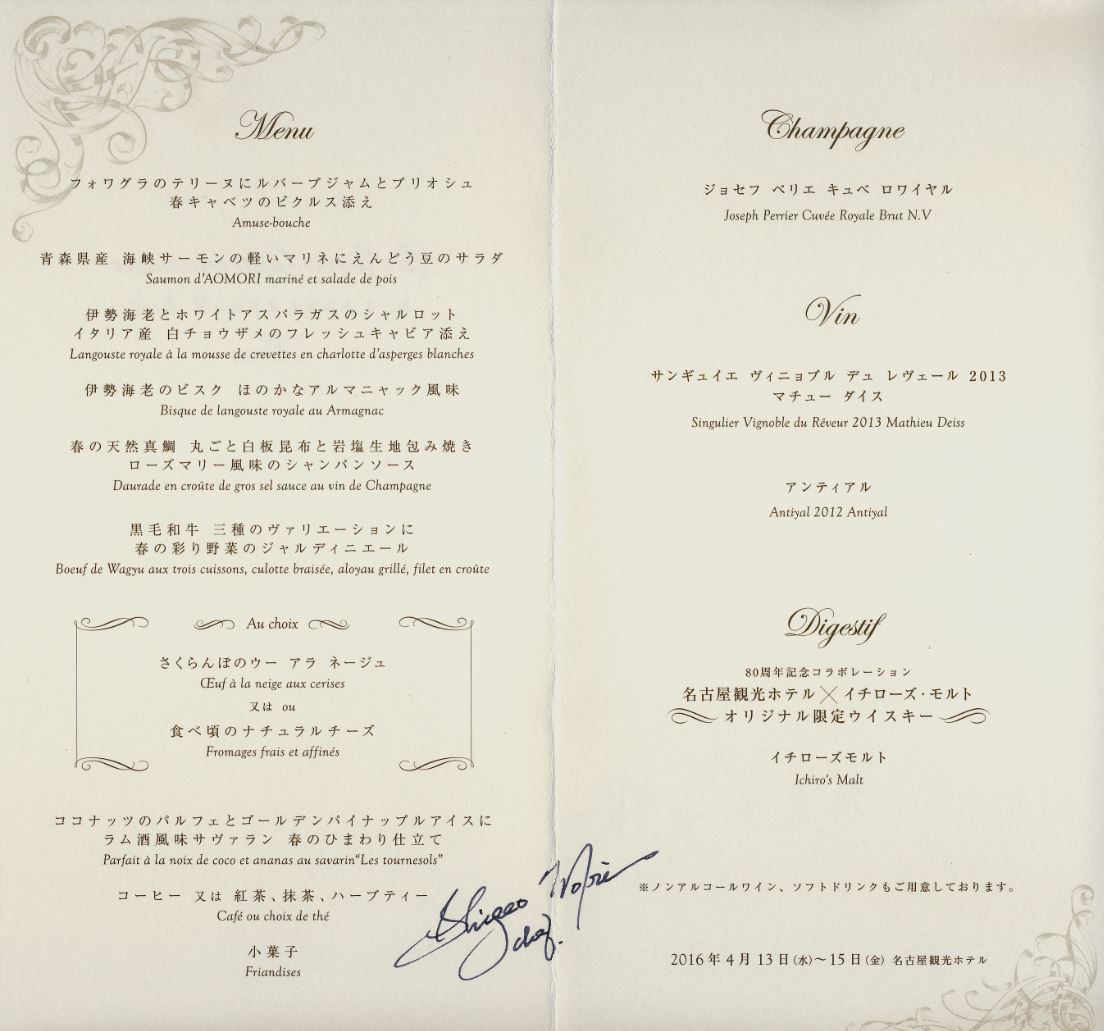 Menu
フォワグラのテリーヌにルバーブジャムとブリオシュ
春キャベツのピクルス添え
Amuse-bouche
青森県産 海峡サーモンの軽いマリネにえんどう豆のサラダ
Saumon d'AOMORI mariné et salade de pois
伊勢海老とホワイトアスパラガスのシャルロット
イタリア産 白チョウザメのフレッシュキャビア添え
Langouste royale à la mousse de crevettes en charlotte d'asperges blanches
伊勢海老のビスク ほのかなアルマニャック風味
Bisque de langouste royale au Armagnac
春の天然真鯛 丸ごと白板昆布と岩塩生地包み焼き
ローズマリー風味のシャンパンソース
Daurade en croûte de gros sel sauce au vin de Champagne
黒毛和牛 三種のヴァリエーションに
春の彩り野菜のジャルディニエール
Boeuf de Wagyu aux trois cuissons, culotte braisée, aloyau grillé, filet en croûte
Au choix
さくらんぼのウー アラ ネージュ
Œuf à la neige aux cerises
又は ou
食べ頃のナチュラルチーズ
Fromages frais et affinés
ココナッツのパルフェとゴールデンパイナップルアイスに
ラム酒風味サヴァラン 春のひまわり仕立て
Parfait à la noix de coco et ananas au savarin“Les tournesols”
コーヒー 又は 紅茶、抹茶、ハーブティー
Café ou choix de thé
小菓子
Friandises
chef.
Champagne
ジョセフ ペリエ キュベ ロワイヤル
Joseph Perrier Cuvée Royale Brut N.V
Vin
サンギュイエ ヴィニョブル デュ レヴェール 2013
マチュー ダイス
Singulier Vignoble du Rêveur 2013 Mathieu Deiss
アンティアル
Antiyal 2012 Antiyal
Digestif
80周年記念コラボレーション
名古屋観光ホテル×イチローズ・モルト
オリジナル限定ウイスキー
イチローズモルト
Ichiro's Malt
※ノンアルコールワイン、ソフトドリンクもご用意しております。
2016年4月13日(水)～15日(金) 名古屋観光ホテル